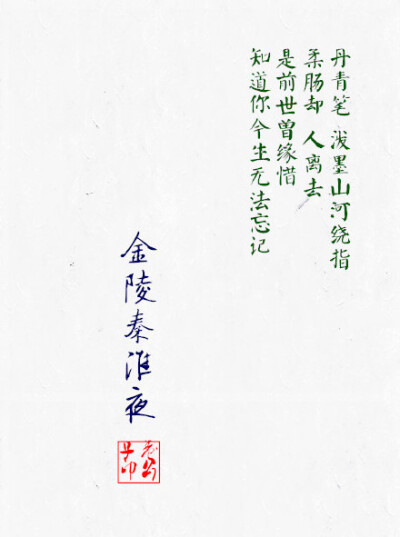 丹青笔 泼墨山河绕指
柔肠却 人离去
是前世曾缘惜
知道你今生无法忘记
金陵秦淮夜